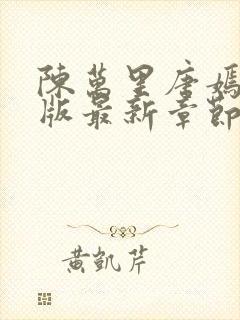 陳萬里唐嫣
版最新章節
黃凱芹